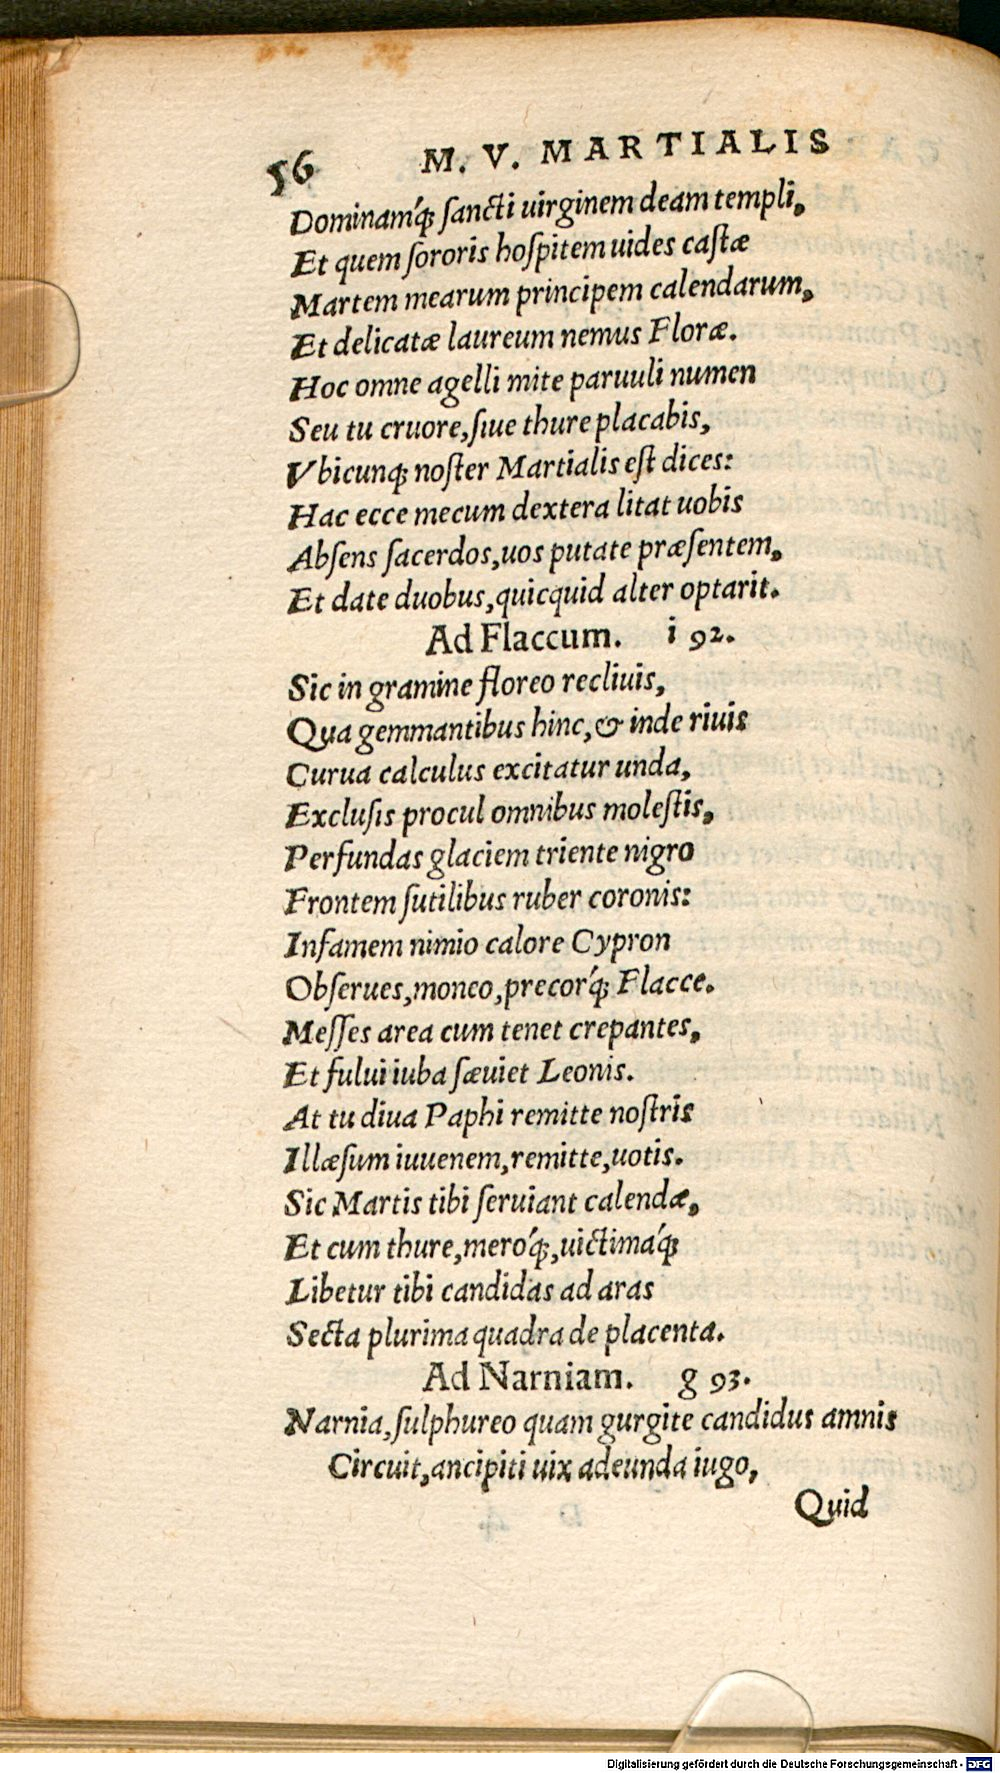 56 M. V. MARTIALIS
Dominamq́; ſancti uirginem deam templi,
Et quem ſororis hoſpitem uides caſtæ
Martem mearum principem calendarum,
Et delicatæ laureum nemus Floræ.
Hoc omne agelli mite paruuli numen
Seu tu cruore, ſiue thure placabis,
Vbicunq; noſter Martialis eſt dices:
Hac ecce mecum dextera litat uobis
Abſens ſacerdos, uos putate præſentem,
Et date duobus, quicquid alter optarit.
Ad Flaccum. i 92.
Sic in gramine floreo recliuis,
Qua gemmantibus hinc, & inde riuis
Curua calculus excitatur unda,
Excluſis procul omnibus moleſtis,
Perfundas glaciem triente nigro
Frontem ſutilibus ruber coronis:
Infamem nimio calore Cypron
Obſerues, moneo, precorq́; Flacce.
Meſſes area cum tenet crepantes,
Et fului iuba ſæuiet Leonis.
At tu diua Paphi remitte noſtris
Illæſum iuuenem, remitte, uotis.
Sic Martis tibi ſeruiant calendæ,
Et cum thure, meroq́;, uictimaq́;
Libetur tibi candidas ad aras
Secta plurima quadra de placenta.
Ad Narniam. g 93.
Narnia, ſulphureo quam gurgite candidus amnis
Circuit, ancipiti uix adeunda iugo,
Quid
Digitalisierung gefördert durch die Deutsche Forschungsgemeinschaft - DFG